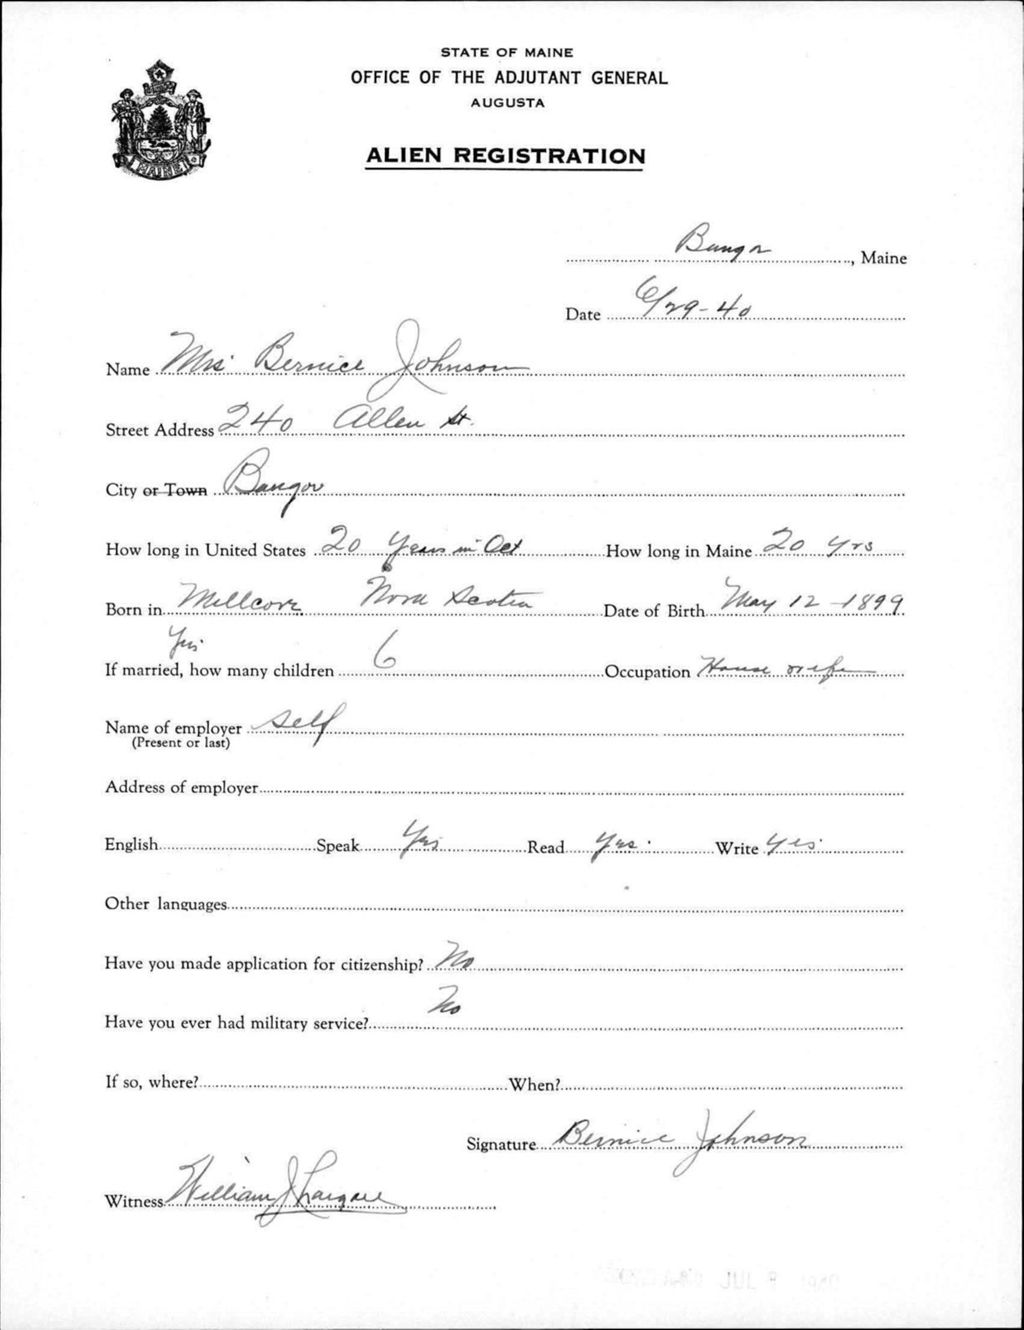 STATE OF MAINE
OFFICE OF THE ADJUTANT GENERAL
AUGUSTA
ALIEN REGISTRATION
MAINE
Bangor, Maine
Date 6/29-40
Name Mrs Bernice Johnson
Street Address 240 Allen St.
City or Town Bangor
How long in United States 20 Years in Oct How long in Maine 20 yrs
Born in Millcove Nova Scotia Date of Birth May 12-1899
Yes.
If married, how many children 6 Occupation House wife
Name of employer Self
(Present or last)
Address of employer
English Speak Yes Read Yes. Write Yes.
Other languages
Have you made application for citizenship? No
Have you ever had military service? No
If so, where? When?
Signature Bernice Johnson
Witness William J
JUL 8